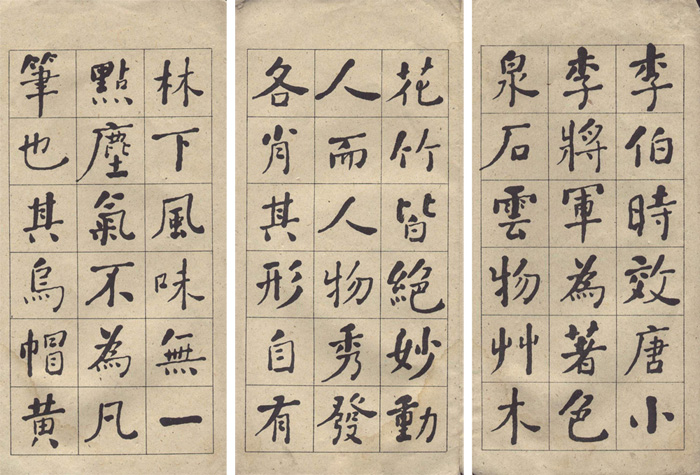 李伯時效唐小
李將軍為著色
泉石雲物艸木
花竹皆絕妙動
人而人物秀發
各肖其形自有
林下風味無一
點塵氣不為凡
筆也其烏帽黃